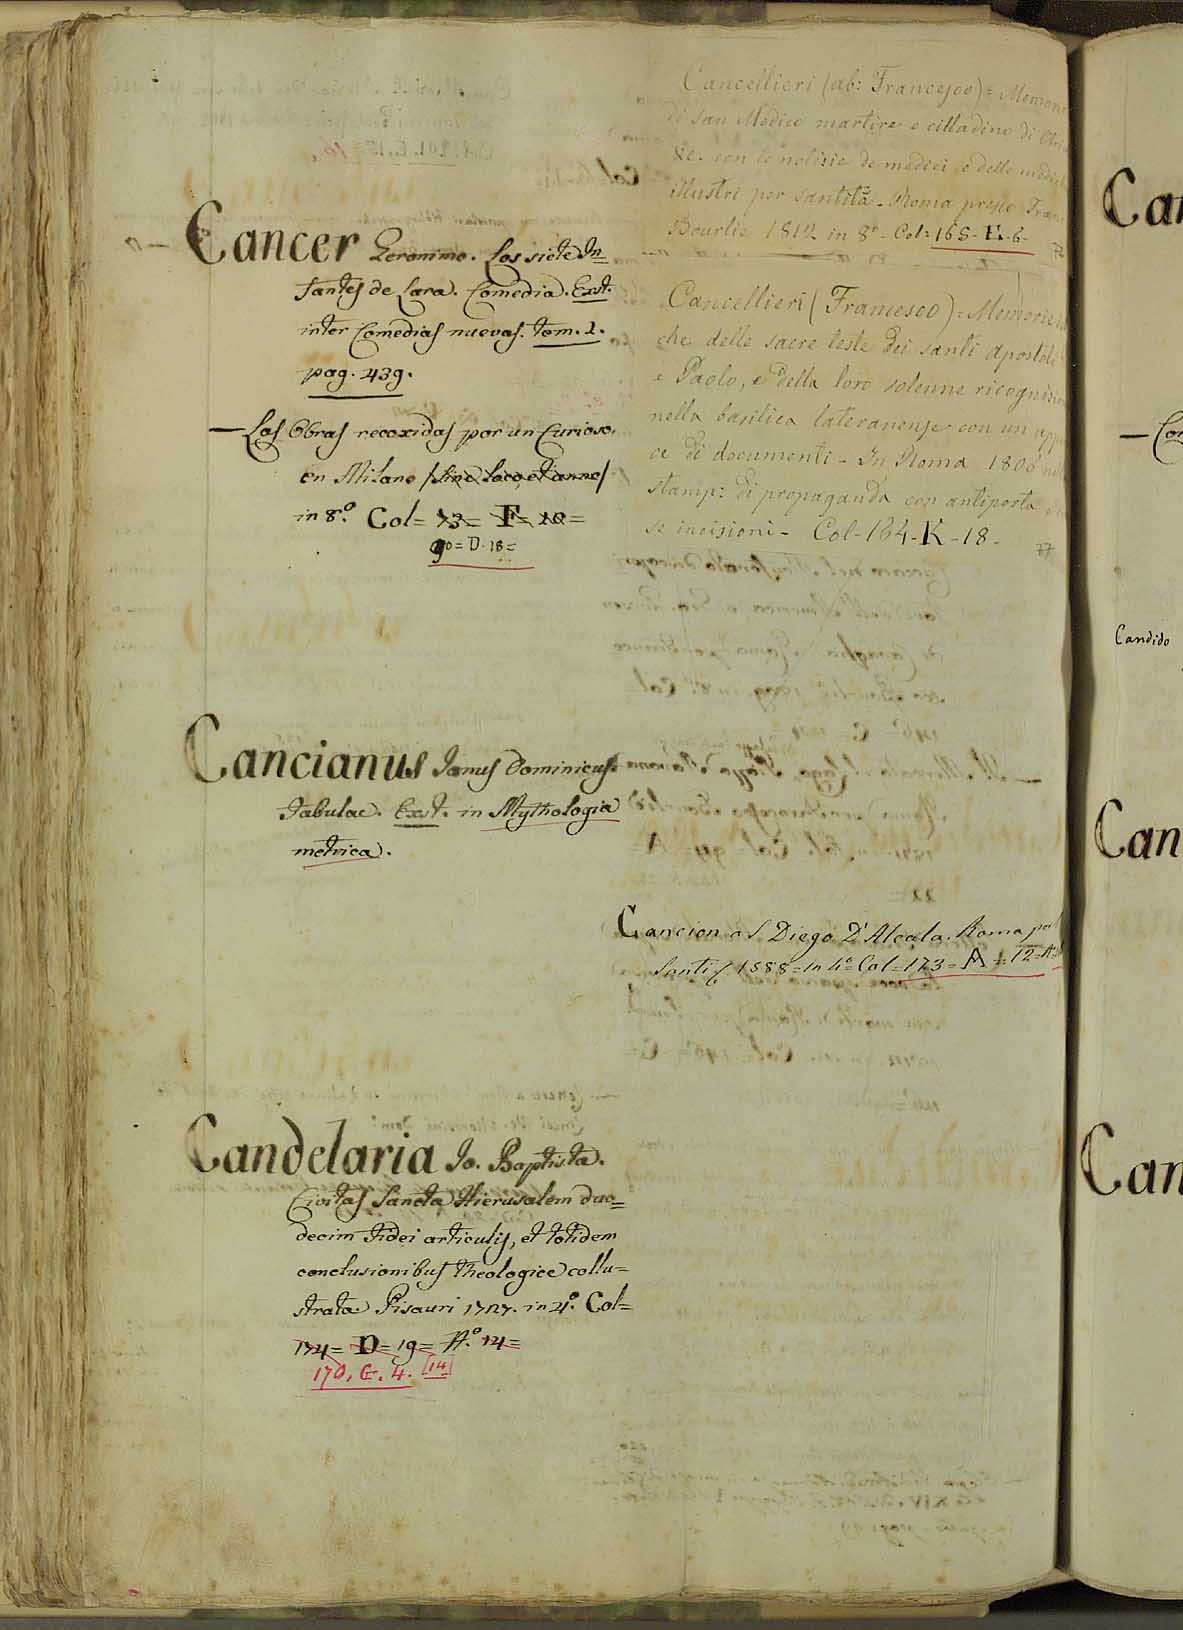 Cancer Geronimo. Los siete In=
fantes de Lara. Comedia. Exst.
inter Comedias nuevas. tom. 1.
pag. 439.
— Las Obras recoxidas por un Curioso.
en Milano /sine loco, et anno/
in 8.º Col= 73= F= 10=
90= D. 18=
Cancianus Janus Dominicus.
Fabulae. Exst. in Mythologia
metrica.
Candelaria Jo. Baptista.
Civitas Sancta Hierusalem duo=
decim Fidei articulis, et totidem
conclusionibus Theologice collu=
strata. Pisauri 1727. in 4.º Col=
174= D= 19= A.º 14=
170. G. 4. 14
Cancellieri (ab: Francesco) = Memorie
di San Medico martire e cittadino di
&c. con le notizie de medici e delle
illustri per santità - Roma presso
Bourlie 1812 in 8º - Col= 168- E- 6-
77
Cancellieri (Francesco) = Memorie
che delle sacre teste dei santi apostoli
e Paolo, e della loro solenne
nella basilica lateranense con un
ce di documenti - In Roma 1806
stamp: di propaganda con antiporta
se incisioni - Col- 164- K- 18-
77
Cancion a S Diego D'Alcala. Roma per
Santi 1588= in 4º= Col= 173= A= 12=
Can
— Con
Candido
Can
Can